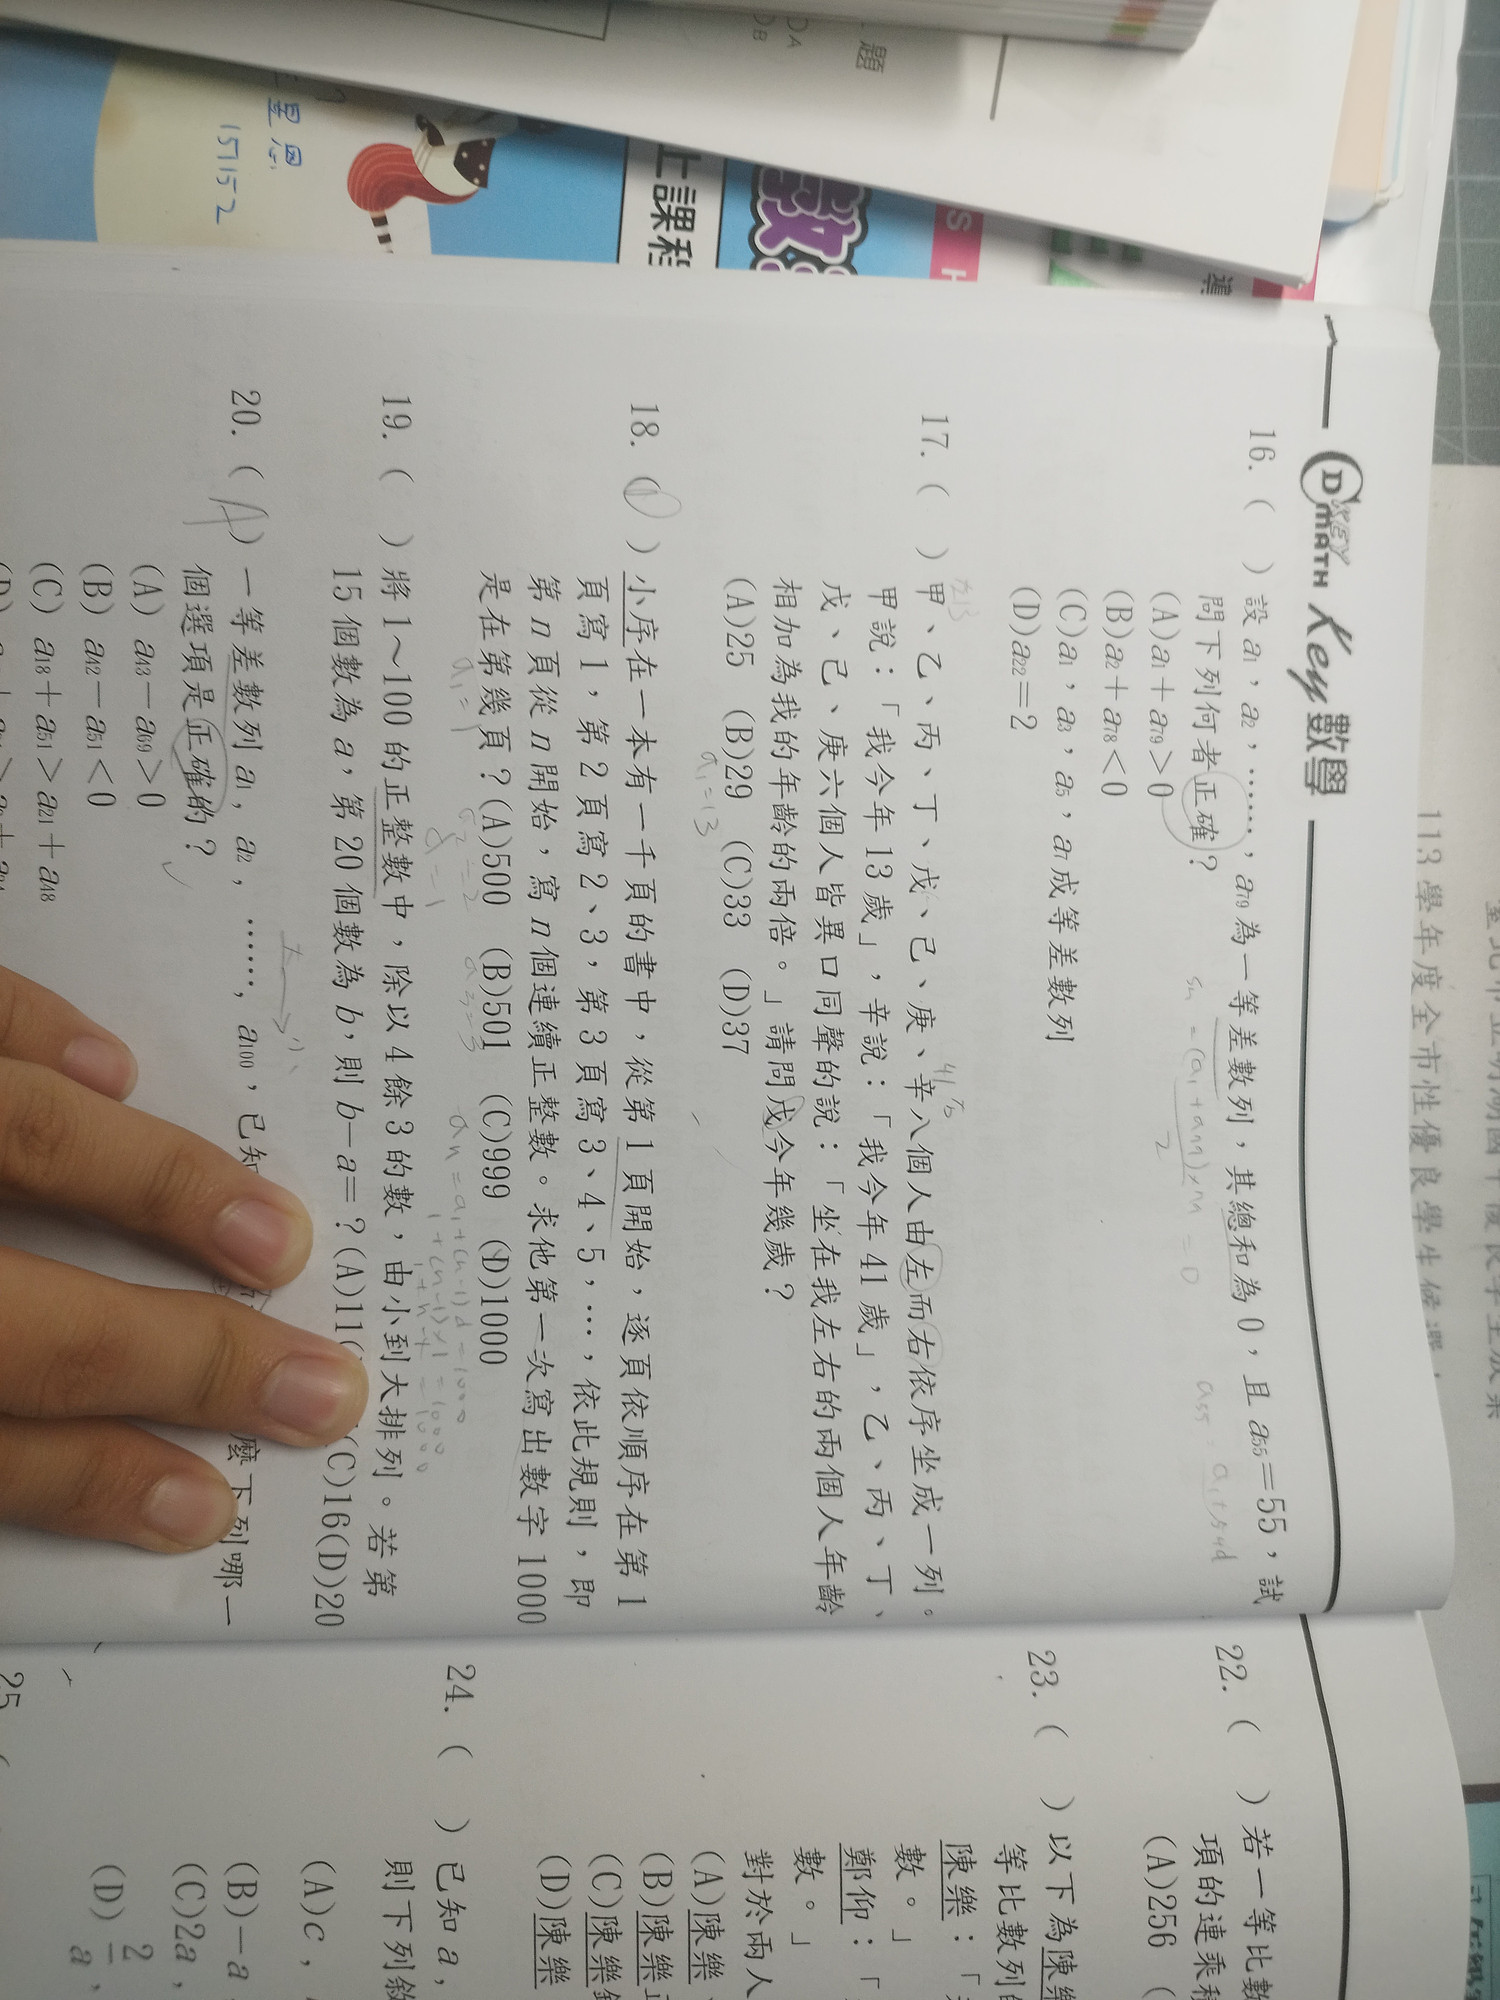 題
DA
DB
里恩
157152
上課程
數
S H
導
DMATH Key 數學
KEY
113學年度全市性優良學生候選
16.( )設a₁,a₂,……,a₇₉為一等差數列,其總和為0,且a₅₅=55,試
問下列何者正確?
(A)a₁+a₇₉>0
(B)a₂+a₇₈<0
(C)a₁,a₃,a₅,a₇成等差數列
(D)a₂₂=2
Sn=(a₁+an)×n/2=0
a₅₅=a₁+54d
17.( )甲、乙、丙、丁、戊、己、庚、辛八個人由左而右依序坐成一列。
甲說:「我今年13歲」,辛說:「我今年41歲」,乙、丙、丁、
戊、己、庚六個人皆異口同聲的說:「坐在我左右的兩個人年齡
相加為我的年齡的兩倍。」請問戊今年幾歲?
(A)25 (B)29 (C)33 (D)37
a₁=13
18.( )小序在一本有一千頁的書中,從第1頁開始,逐頁依順序在第1
頁寫1,第2頁寫2、3,第3頁寫3、4、5,…,依此規則,即
第n頁從n開始,寫n個連續正整數。求他第一次寫出數字1000
是在第幾頁?(A)500 (B)501 (C)999 (D)1000
a₁=1 a₂=2 a₃=3
d=1
an=a₁+(n-1)d=1000
1+(n-1)×1=1000
1+n-1=1000
19.( )將1~100的正整數中,除以4餘3的數,由小到大排列。若第
15個數為a,第20個數為b,則b-a=?(A)11( (C)16(D)20
20.(A)一等差數列a₁,a₂,……,a₁₀₀,已知 麼下列哪一
個選項是正確的?
(A) a₄₃-a₆₉>0
(B) a₄₂-a₅₁<0
(C) a₁₈+a₅₁>a₂₁+a₄₈
22.( )若一等比數
項的連乘積
(A)256 (
23.( )以下為陳樂
等比數列的
陳樂:「
數。」
鄭仰:「
數。」
對於兩人
(A)陳樂
(B)陳樂
(C)陳樂
(D)陳樂
24.( )已知a,
則下列敘
(A)c,
(B)-a
(C)2a,
(D)2/a,
25